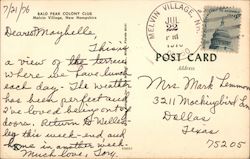 7/21/76
BALD PEAK COLONY CLUB
Melvin Village, New Hampshire
Dear Maybelle,
This is
a view of the terrace
where we have lunch
each day. The weather
has been perfect and
I've loved being out of
doors. Return to Welles-
ley this week-end and
home in another week.
Much love,
MELVIN VILLAGE, N.H.
JUL
22
PM
1976
POST CARD
Address
Mrs. Mark Lemmon
3211 Mockingbird Ln
Dallas
Texas
75205